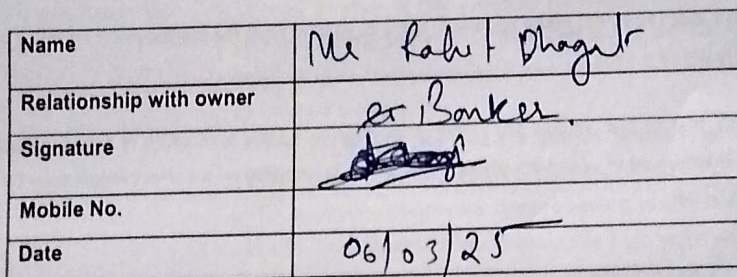 Name Mr Rahul
Relationship with owner ex Banker.
Signature
Mobile No.
Date 06/03/25